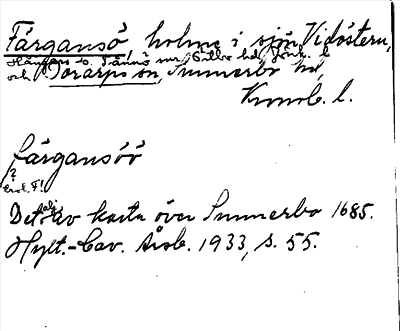 Färgansö, holme i sjön Vidöstern,
Hångers o. Tånnö snr, Östbo hd, Jönk. l.
och Torarps sn, Sunnerbo hd,
Kronob. l.
färgansöö
?
Det av karta över Sunnerbo 1685.
Hylt.-Cav. Årsb. 1933, s. 55.